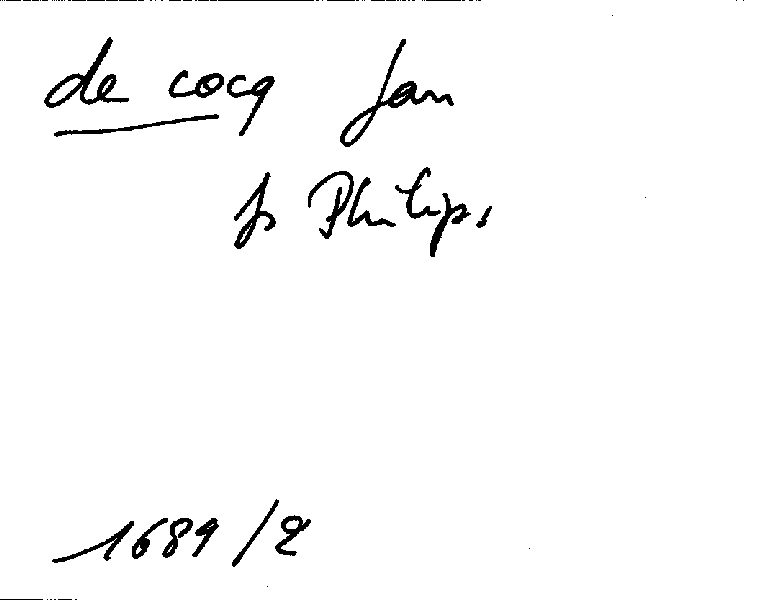 de cocq Jan
fs Philips
1689/2